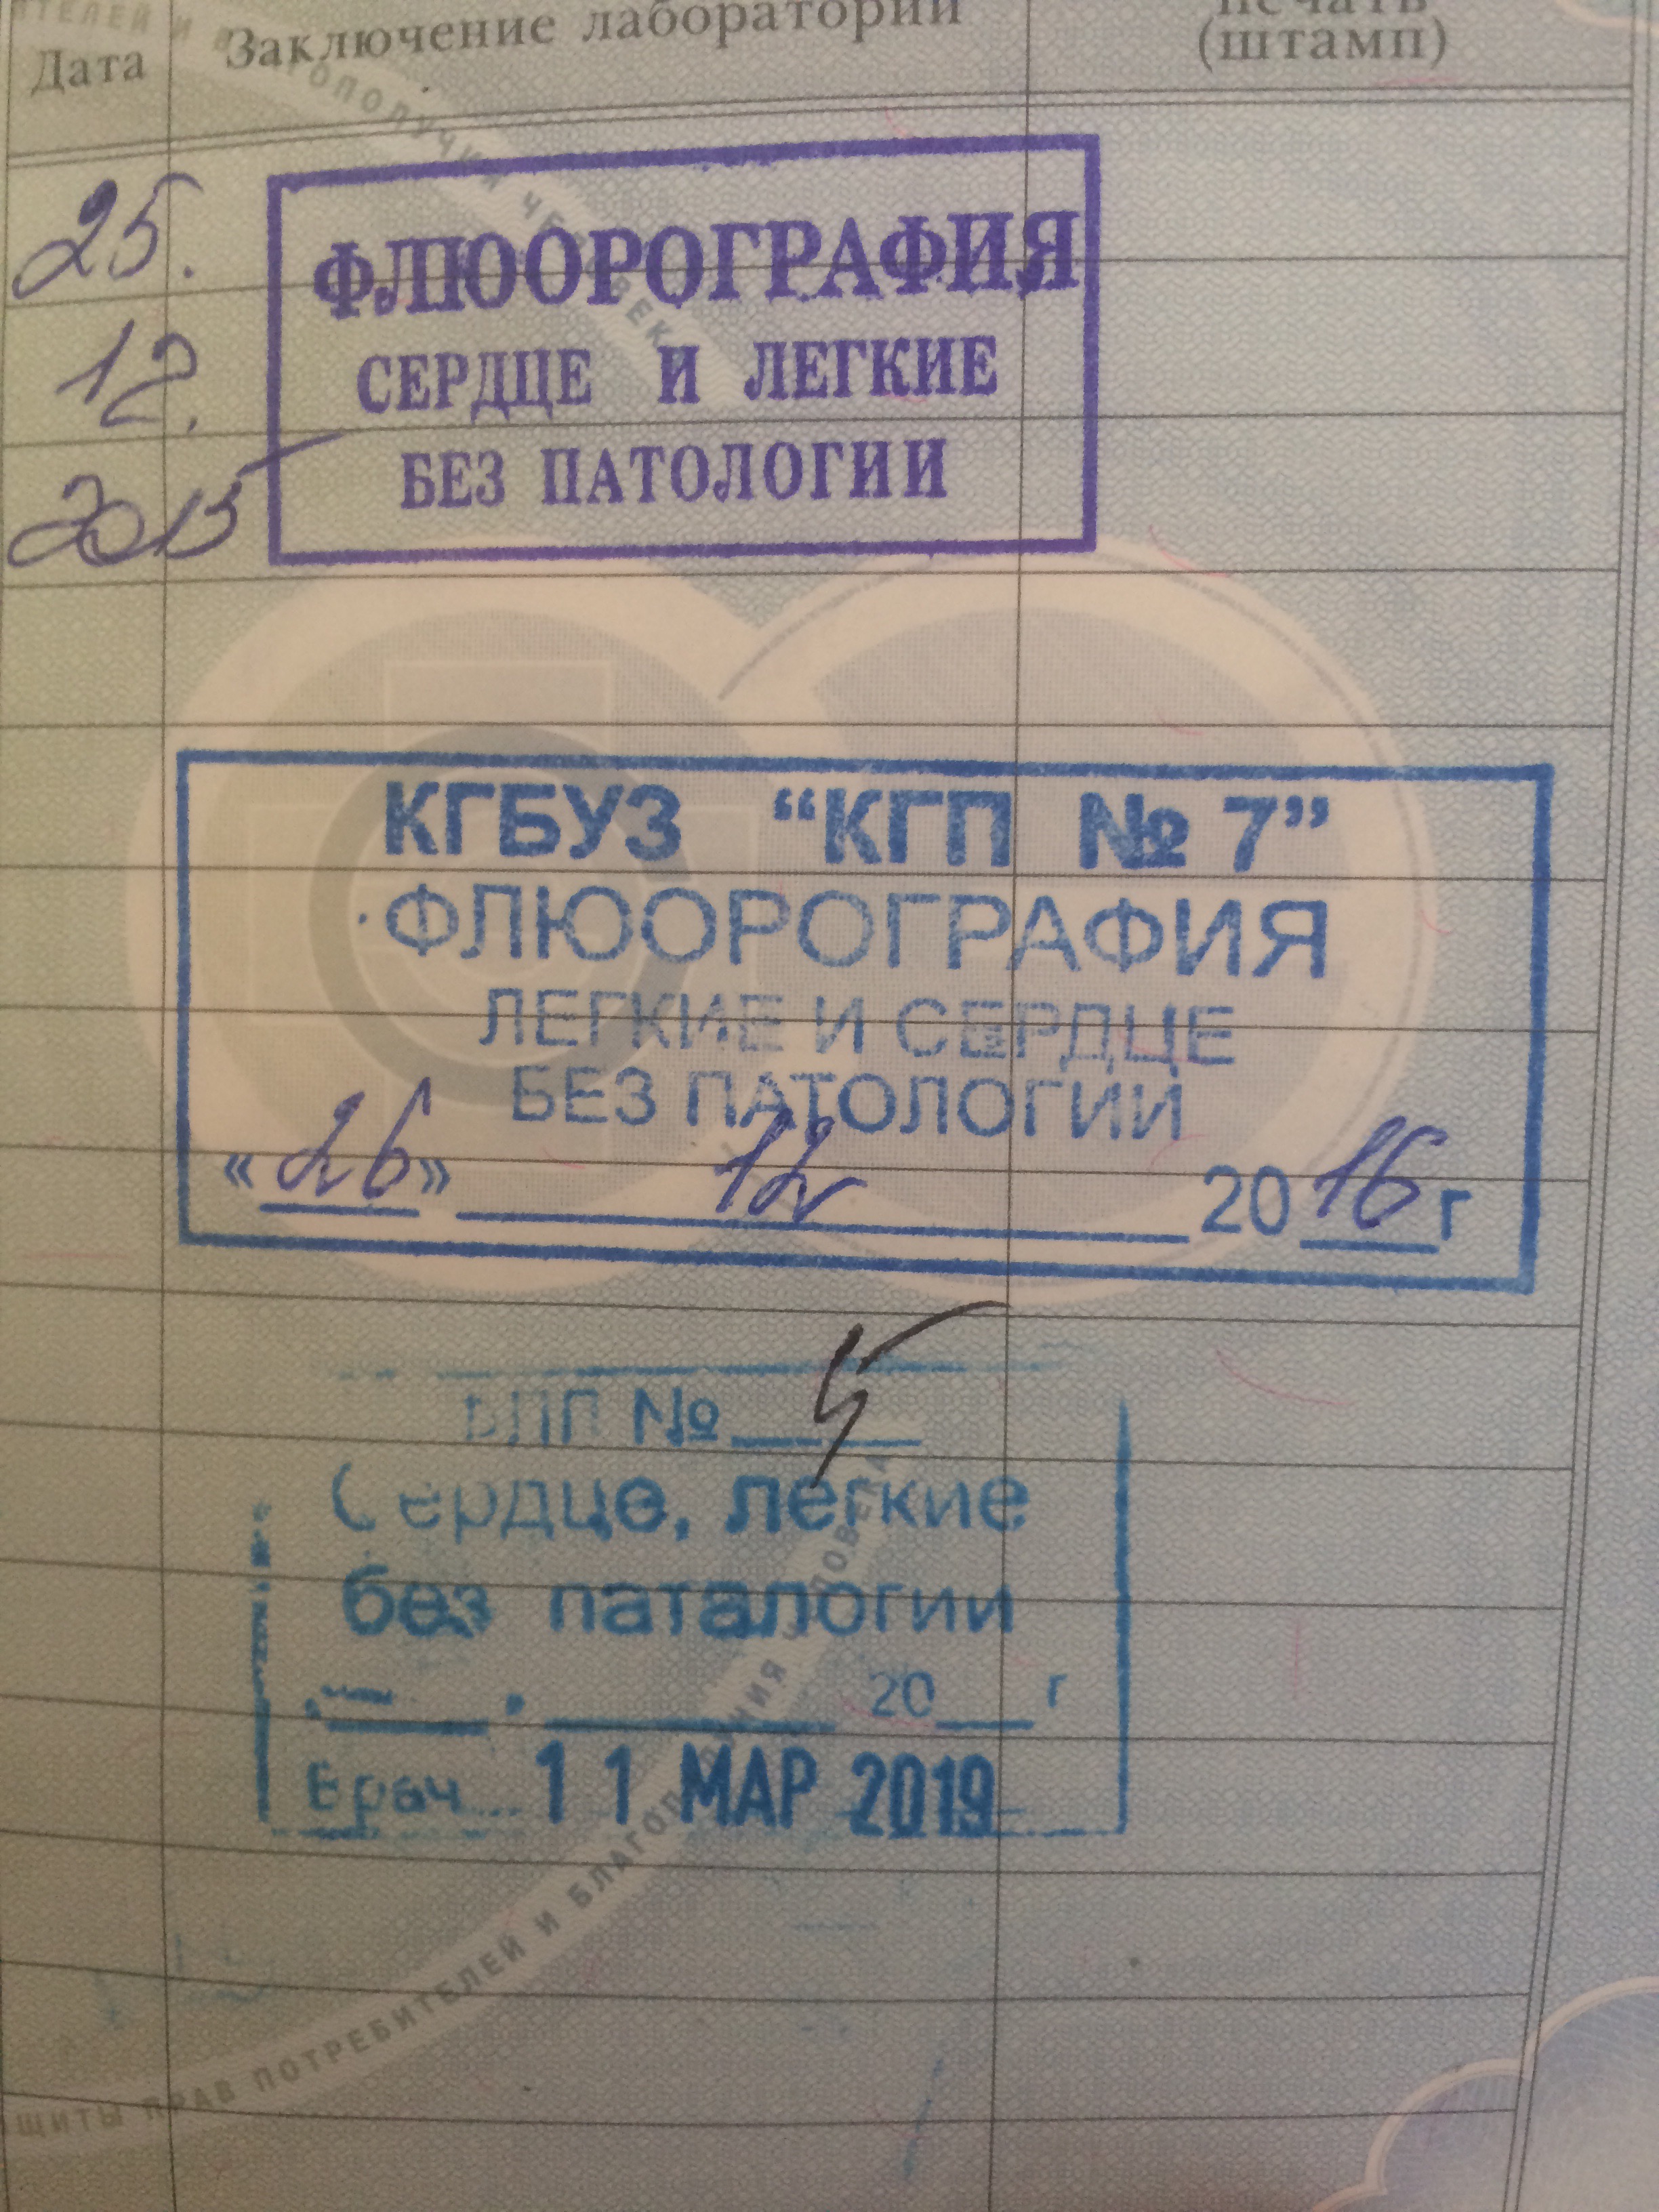 Дата
Заключение лаборатории
печать
(штамп)
25.
12.
2015
ФЛЮОРОГРАФИЯ
СЕРДЦЕ И ЛЕГКИЕ
БЕЗ ПАТОЛОГИИ
КГБУЗ “КГП № 7”
ФЛЮОРОГРАФИЯ
ЛЕГКИЕ И СЕРДЦЕ
БЕЗ ПАТОЛОГИИ
«26» 12 2016 г
№ 5
Сердце, легкие
без паталогии
20 г
Врач 11 МАР 2019
ЩИТЫ ПРАВ ПОТРЕБИТЕЛЕЙ И БЛАГОПОЛ